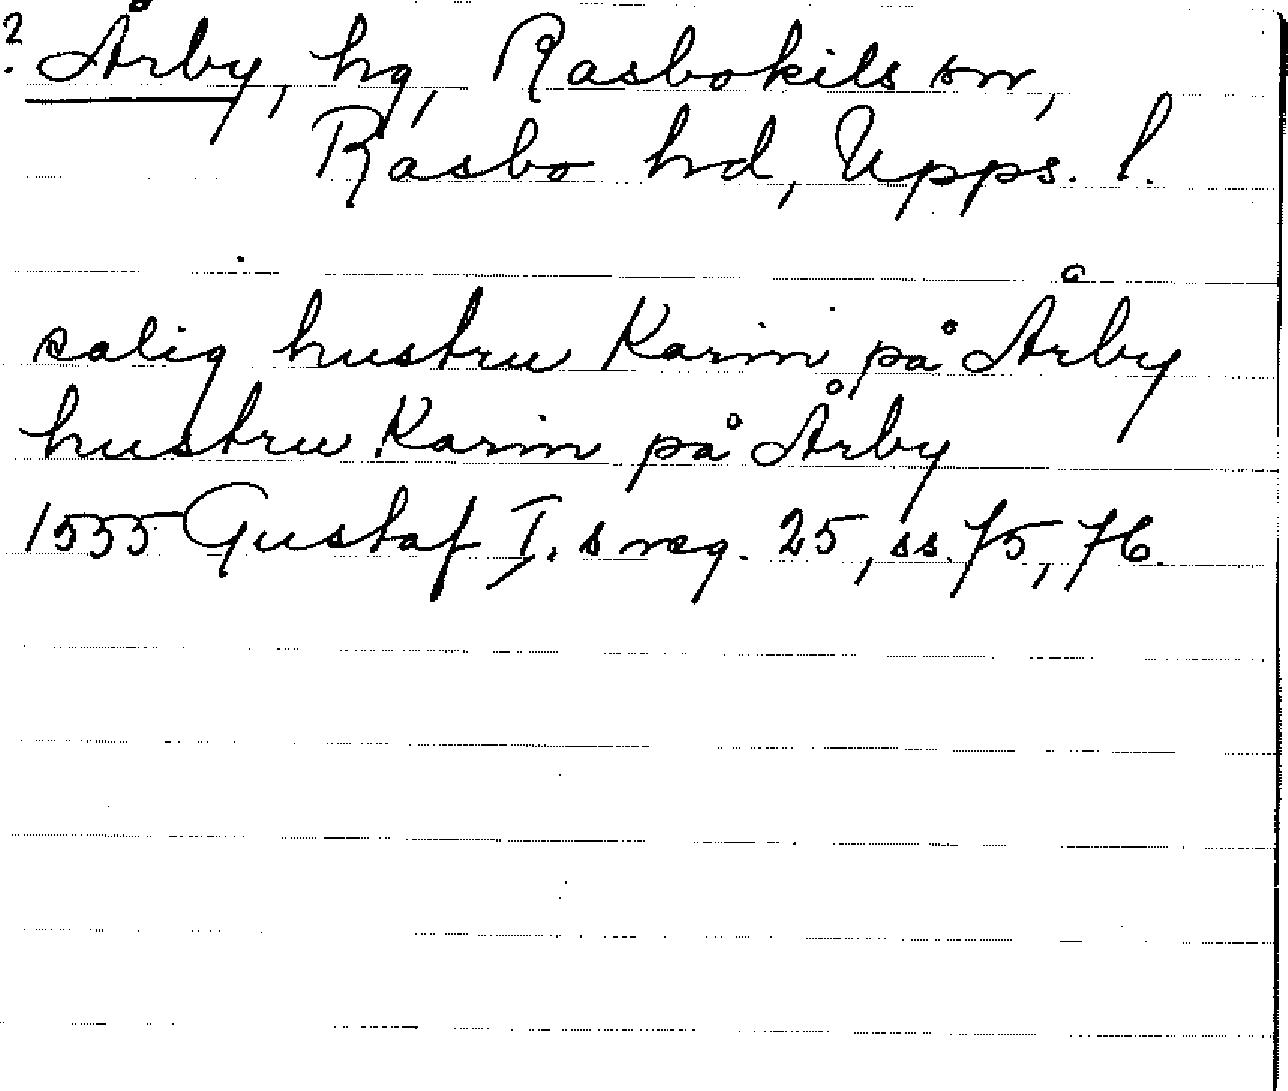 ? Årby, hg, Rasbokils sn,
Rasbo hd, Upps. l.
salig hustru Karin på Årby
hustru Karin på Årby
1555 Gustaf I.s reg. 25, ss. 75, 76.